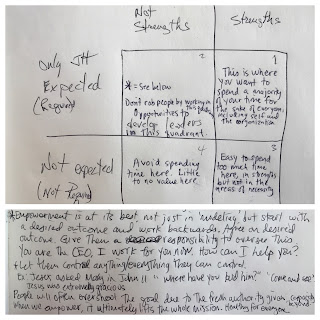 Not
Strengths
Strengths
Only JH
Expected
(Required)
2
* = see below
Don't rob people by working in this quadrant
Opportunities to
develop leaders
in This quadrant.
1
This is where you
want to spend a majority
of your time for
the sake of everyone,
including self and
the organization
Not expected
(Not Required)
4
Avoid spending
time here. Little
to no value here.
3
Easy to spend
too much time
here, in strengths
but not in the
areas of necessity
*Empowerment is at its best, not just in "modeling" but start with
a desired outcome and work backwards. Agree on desired
outcome. Give Them a responsibility to oversee This
You are the CEO, I work for you now. How can I help you?
+ Let them control anything/everything They can control.
To Jesus asked Mary in John 11 "where have you laid him?" "Come and see"
Jesus was extremely gracious
People will often overshoot The goal due to the fresh authority given
When we empower, it ultimately lifts the whole mission. Healthy for everyone.